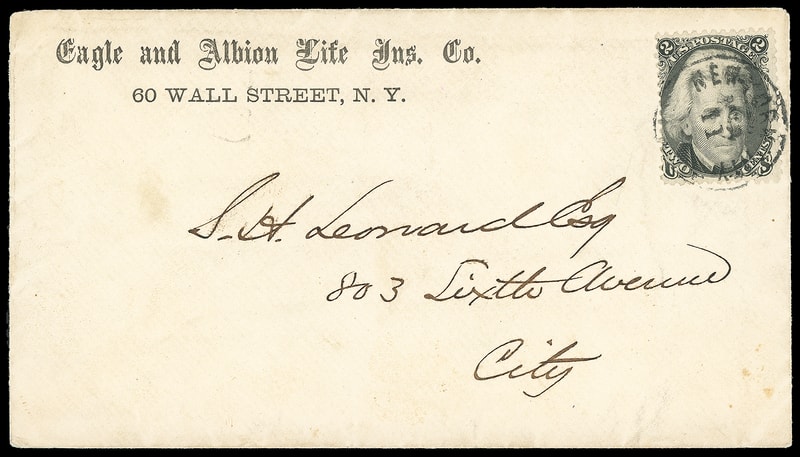 Eagle and Albion Life Ins. Co.
60 WALL STREET, N. Y.
2 U.S. POSTAGE 2
TWO CENTS
NEW YORK
S. H. Leonard Esq
803 Sixth Avenue
City